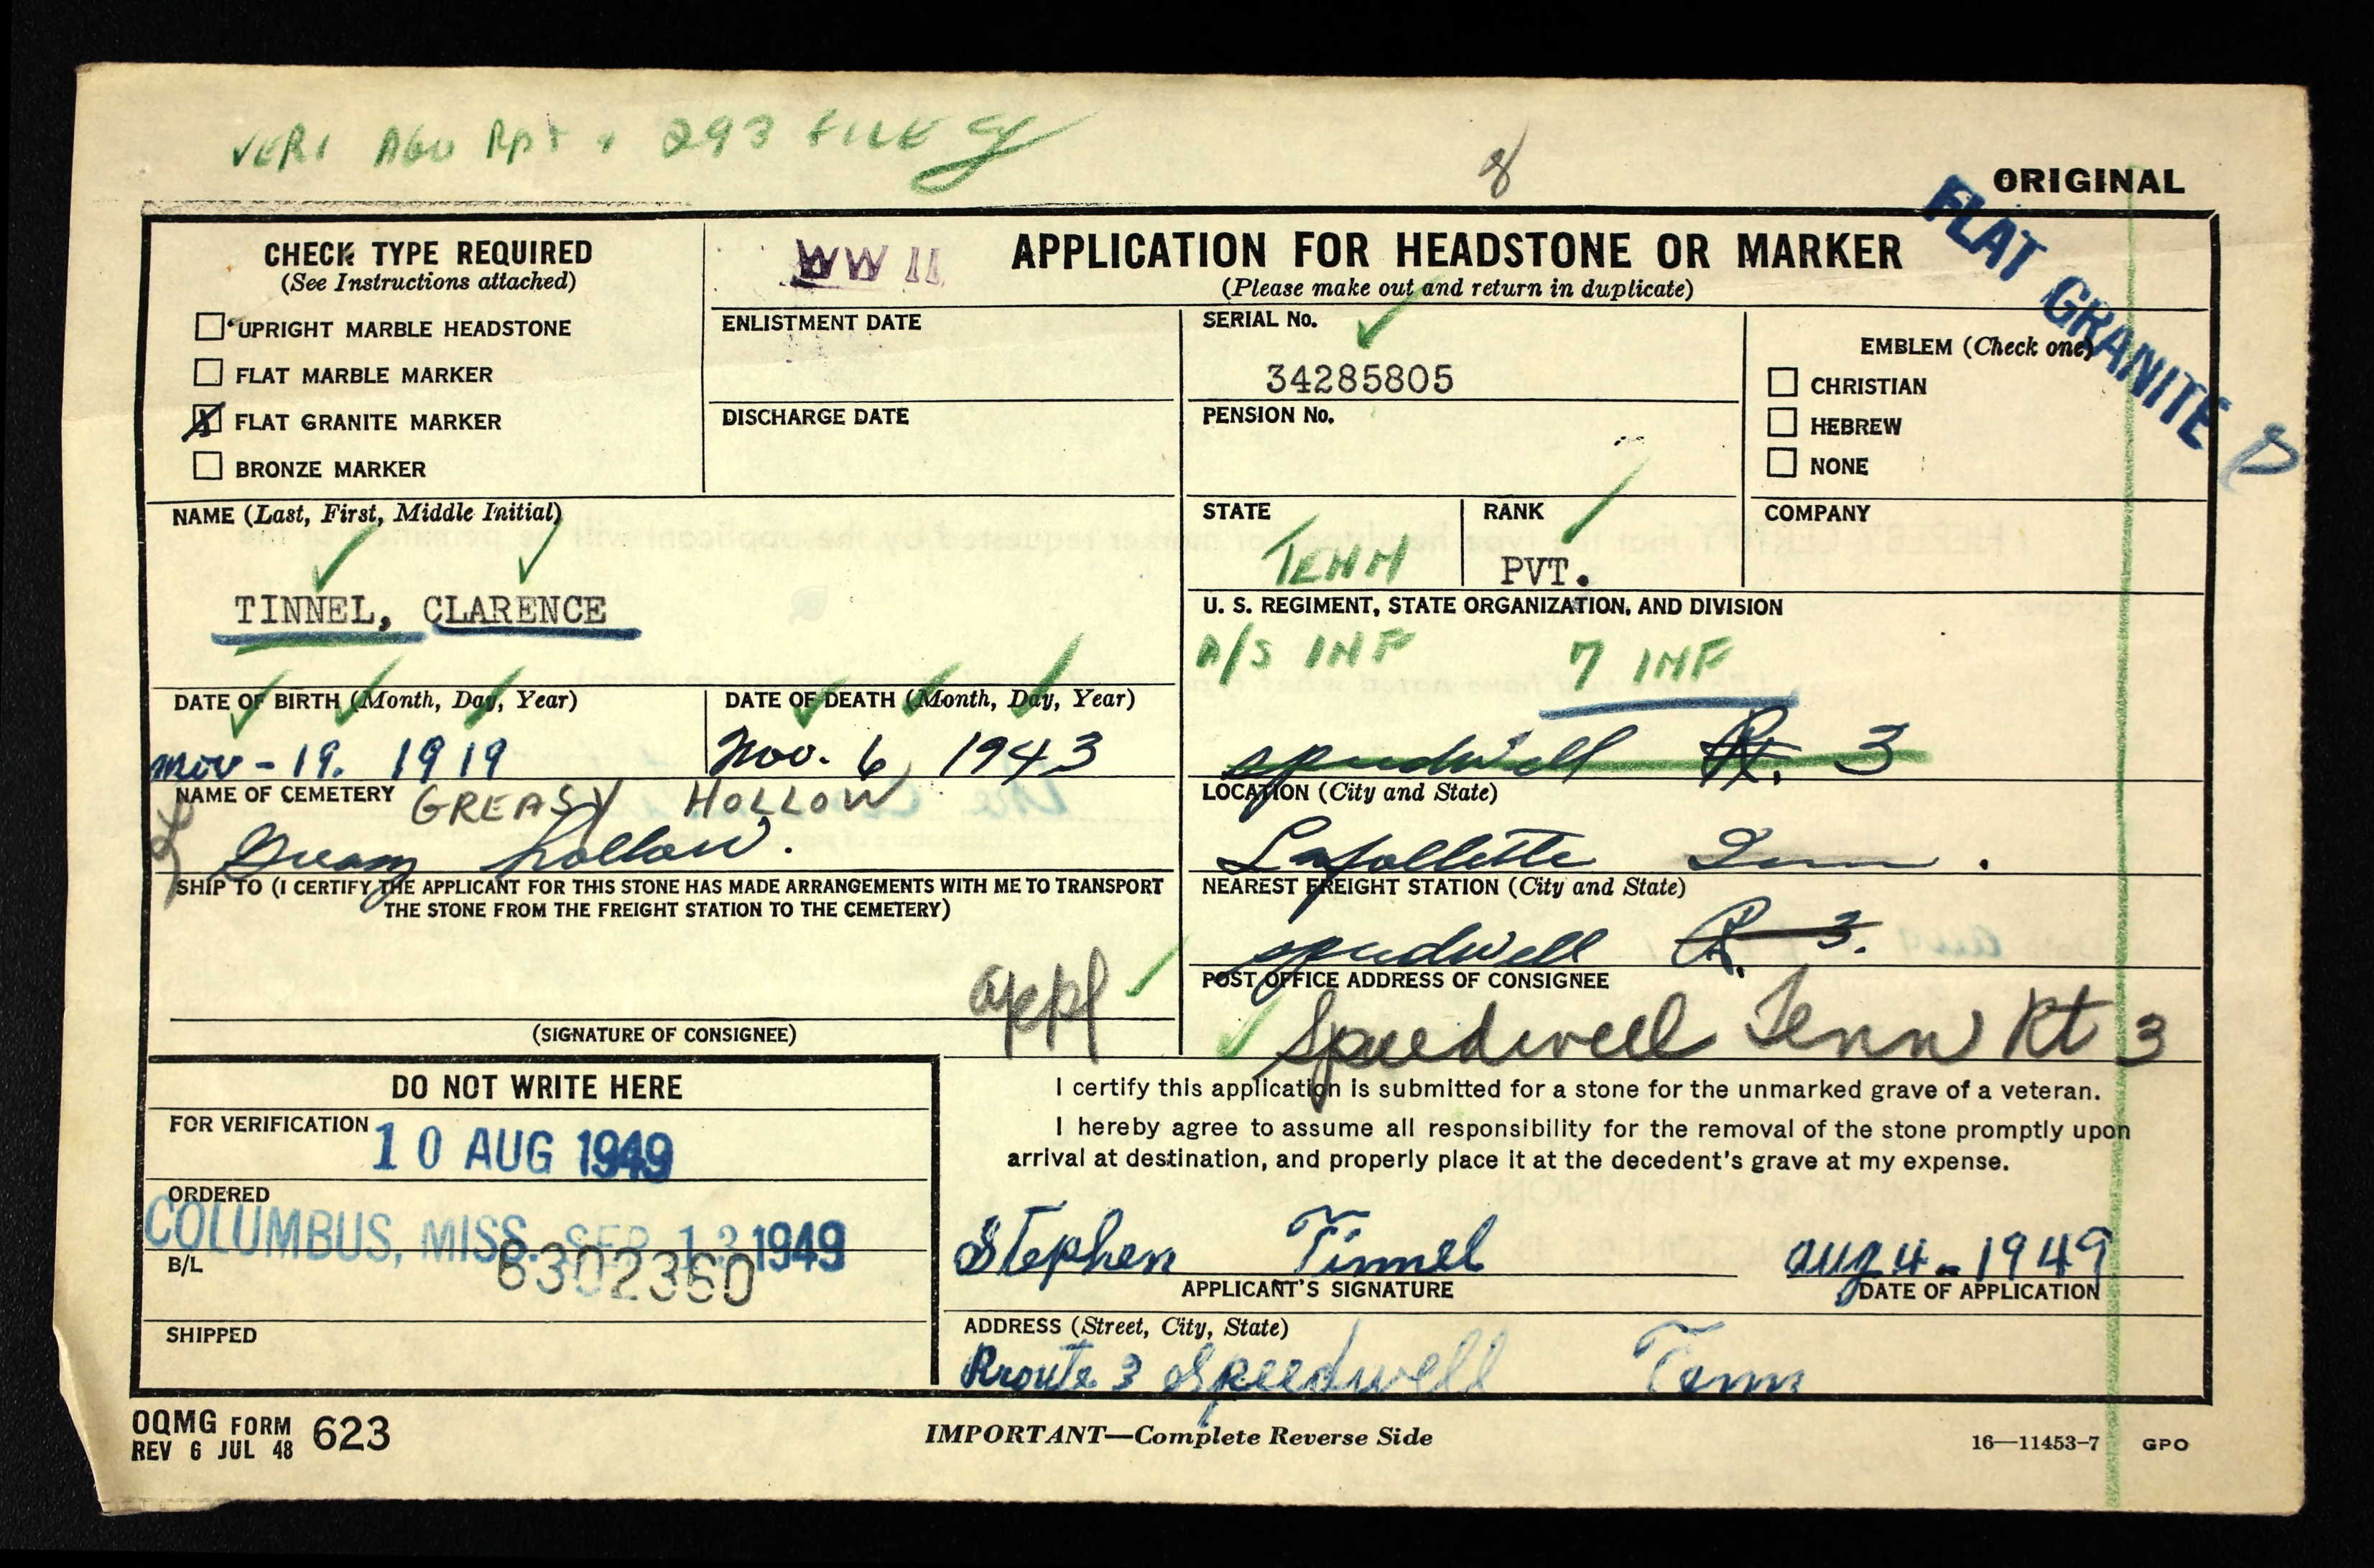 VERI AGO RPT + 293 FILE
8
ORIGINAL
FLAT GRANITE
CHECK TYPE REQUIRED
(See Instructions attached)
UPRIGHT MARBLE HEADSTONE
FLAT MARBLE MARKER
X FLAT GRANITE MARKER
BRONZE MARKER
WW II
APPLICATION FOR HEADSTONE OR MARKER
(Please make out and return in duplicate)
ENLISTMENT DATE
DISCHARGE DATE
SERIAL No.
34285805
PENSION No.
EMBLEM (Check one)
CHRISTIAN
HEBREW
NONE
NAME (Last, First, Middle Initial)
TINNEL, CLARENCE
STATE
TENN
RANK
PVT.
COMPANY
U. S. REGIMENT, STATE ORGANIZATION, AND DIVISION
A/S INF 7 INF
DATE OF BIRTH (Month, Day, Year)
Nov - 19. 1919
DATE OF DEATH (Month, Day, Year)
Nov. 6, 1943
speedwell Rt. 3
NAME OF CEMETERY
GREASY HOLLOW
Greasy hollow.
LOCATION (City and State)
Lafollette Tenn.
SHIP TO (I CERTIFY THE APPLICANT FOR THIS STONE HAS MADE ARRANGEMENTS WITH ME TO TRANSPORT
THE STONE FROM THE FREIGHT STATION TO THE CEMETERY)
appl
(SIGNATURE OF CONSIGNEE)
NEAREST FREIGHT STATION (City and State)
speedwell R. 3.
POST OFFICE ADDRESS OF CONSIGNEE
Speedwell Tenn Rt 3
DO NOT WRITE HERE
FOR VERIFICATION
10 AUG 1949
ORDERED
COLUMBUS, MISS. SEP 13 1949
B/L
6302360
SHIPPED
I certify this application is submitted for a stone for the unmarked grave of a veteran.
I hereby agree to assume all responsibility for the removal of the stone promptly upon
arrival at destination, and properly place it at the decedent's grave at my expense.
Stephen Tinnel
APPLICANT'S SIGNATURE
aug 4 - 1949
DATE OF APPLICATION
ADDRESS (Street, City, State)
Rroute 3 Speedwell Tenn
OQMG FORM 623
REV 6 JUL 48
IMPORTANT—Complete Reverse Side
16—11453-7 GPO